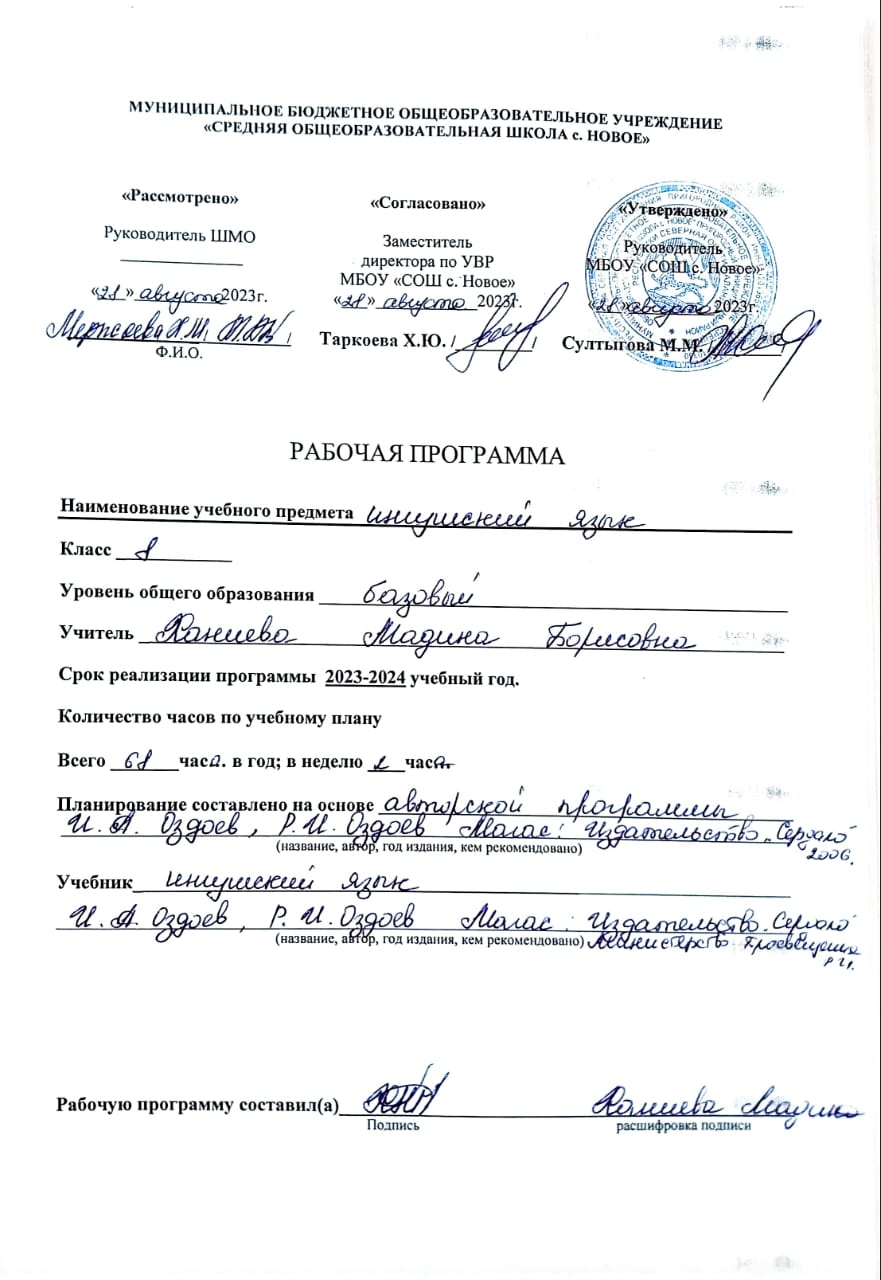 МУНИЦИПАЛЬНОЕ БЮДЖЕТНОЕ ОБЩЕОБРАЗОВАТЕЛЬНОЕ УЧРЕЖДЕНИЕ
«СРЕДНЯЯ ОБЩЕОБРАЗОВАТЕЛЬНАЯ ШКОЛА с. НОВОЕ»
«Рассмотрено»
Руководитель ШМО
«28» августа 2023г.
Ф.И.О.
«Согласовано»
Заместитель
директора по УВР
МБОУ «СОШ с. Новое»
«28» августа 2023г.
Таркоева Х.Ю. / /
«Утверждено»
Руководитель
МБОУ «СОШ с. Новое»
«28» августа 2023г.
Султыгова М.М. /
РАБОЧАЯ ПРОГРАММА
Наименование учебного предмета ингушский язык
Класс 8
Уровень общего образования базовый
Учитель Ханиева Мадина Борисовна
Срок реализации программы 2023-2024 учебный год.
Количество часов по учебному плану
Всего 68 часа. в год; в неделю 2 часа
Планирование составлено на основе авторской программы
И. А. Оздоев, Р. И. Оздоев Магас: Издательство "Сердало"
(название, автор, год издания, кем рекомендовано)
2006.
Учебник ингушский язык
И. А. Оздоев, Р. И. Оздоев Магас: Издательство "Сердало"
(название, автор, год издания, кем рекомендовано) Министерство Просвещения
РИ.
Рабочую программу составил(а) Ханиева Мадина
Подпись расшифровка подписи